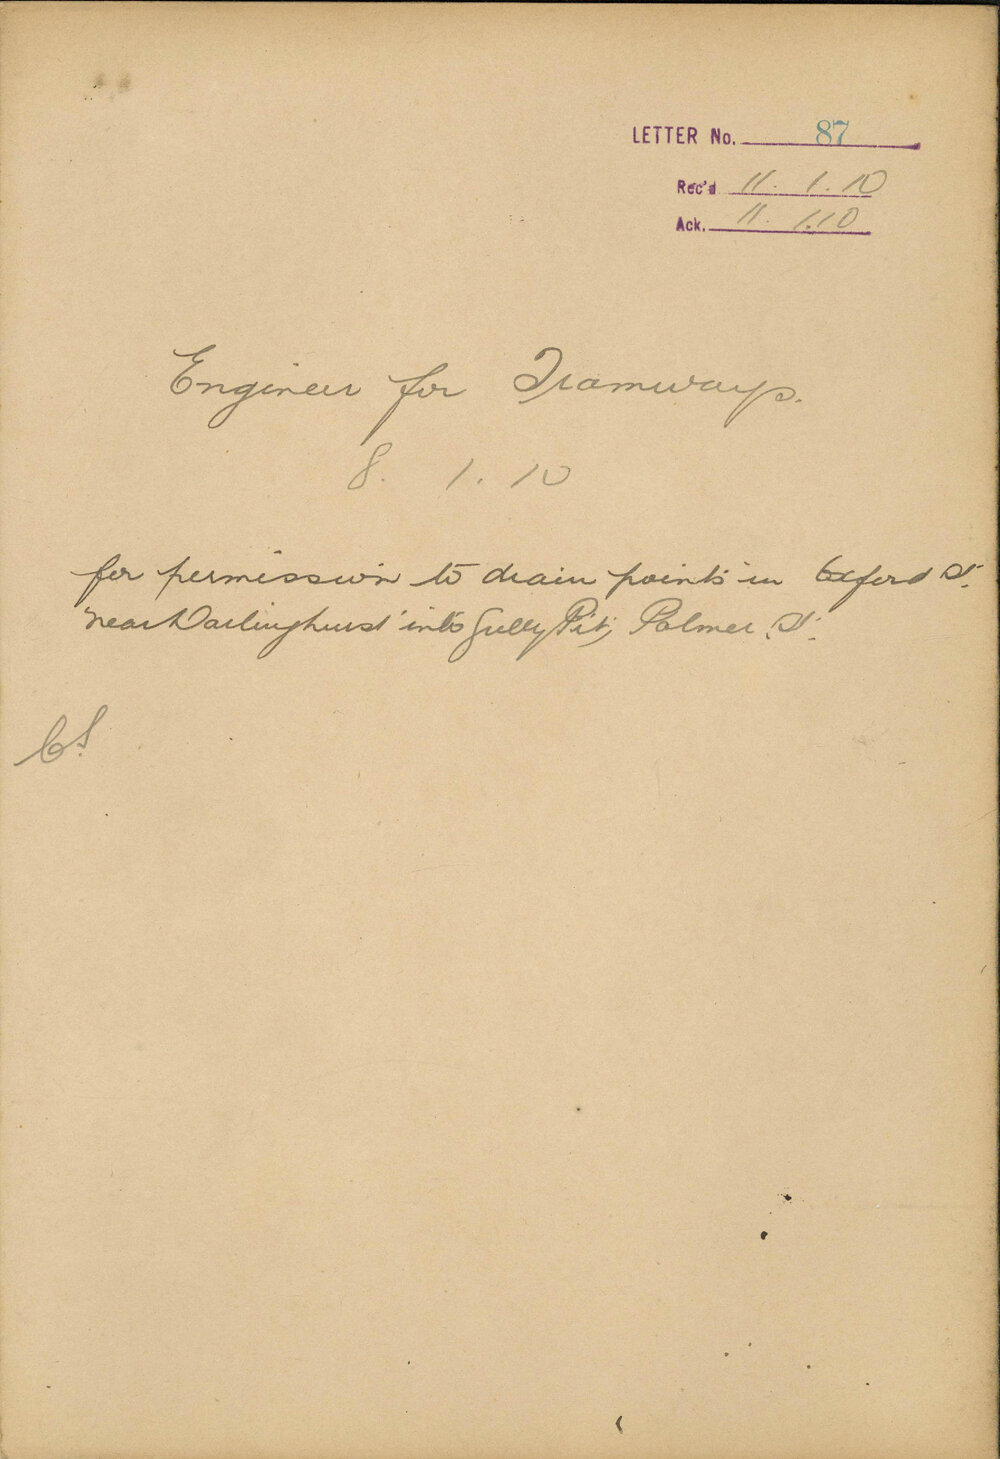 LETTER No. 87
Rec'd 11. 1. 10
Ack. 11. 1.10
Engineer for Tramways.
8. 1. 10
for permission to drain points in Oxford St.
near Darlinghurst into Gully Pit, Palmer St.
CS